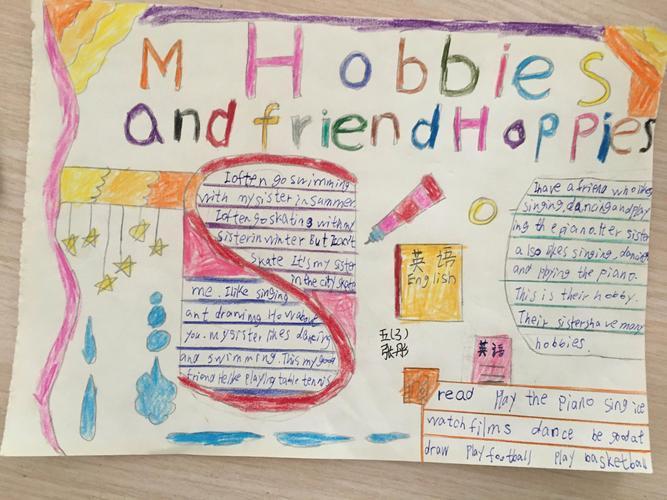 M Hobbies
and friend Hoppies
I often go swimming
with my sister in summer.
I often go skating with my
sister in winter But I can't
skate It's my sister
in the city skate
me. I like singing
ant drawing How about
you. my sister likes dancing
and swimming. This my good
friend He like playing table tennis
英语
English
五(3)
张彤
英语
I have a friend who likes
singing, dancing and play
ing the piano. Her sister
also likes singing, dancing
and plying the piano.
This is their hobby.
Their sisters have many
hobbies.
read play the piano sing ice
watch films dance be good at
draw play football play basketball